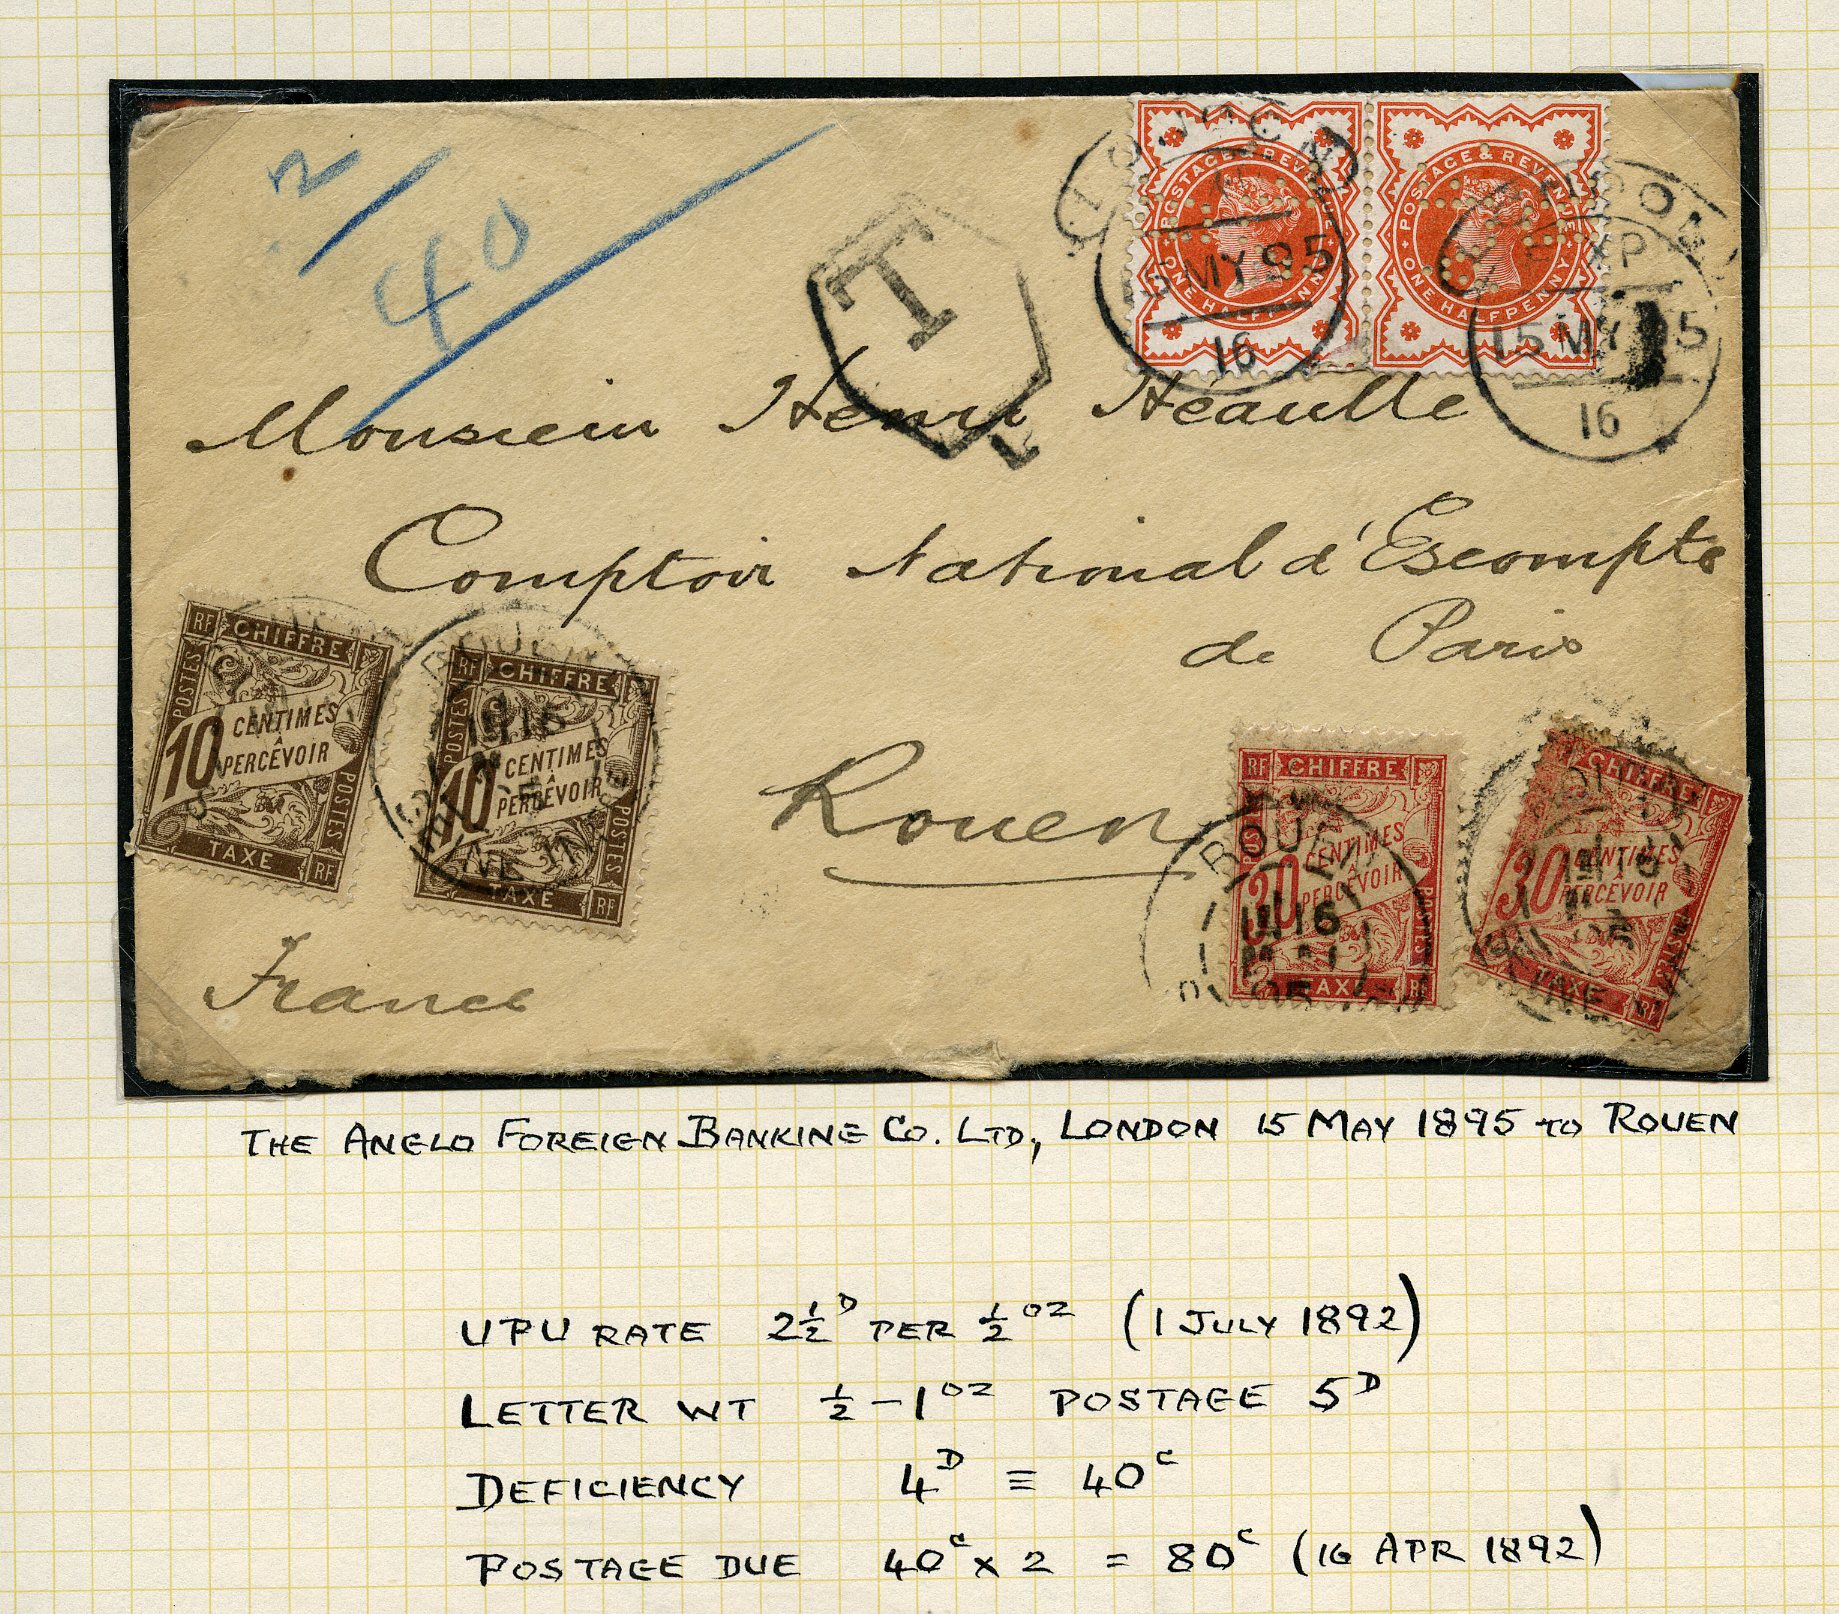 2
40
T
L
POSTAGE & REVENUE
ONE HALFPENNY
POSTAGE & REVENUE
ONE HALFPENNY
15 MY 95
16
XP
15 MY 95
16
Monsieur Henri Héaulle
Comptoir National d'Escompte
de Paris
Rouen
France
RF CHIFFRE
POSTES
10 CENTIMES
À
PERCEVOIR
POSTES
TAXE RF
RF CHIFFRE
POSTES
10 CENTIMES
À
PERCEVOIR
POSTES
TAXE RF
ROUEN
RF CHIFFRE
30 CENTIMES
À
PERCEVOIR
POSTES
TAXE RF
ROUEN
16
95
CHIFFRE
30 CENTIMES
À
PERCEVOIR
POSTES
TAXE RF
THE ANGLO FOREIGN BANKING CO. LTD, LONDON 15 MAY 1895 TO ROUEN
UPU RATE 2½D PER ½OZ (1 JULY 1892)
LETTER WT ½ – 1OZ POSTAGE 5D
DEFICIENCY 4D ≡ 40C
POSTAGE DUE 40C x 2 = 80C (16 APR 1892)